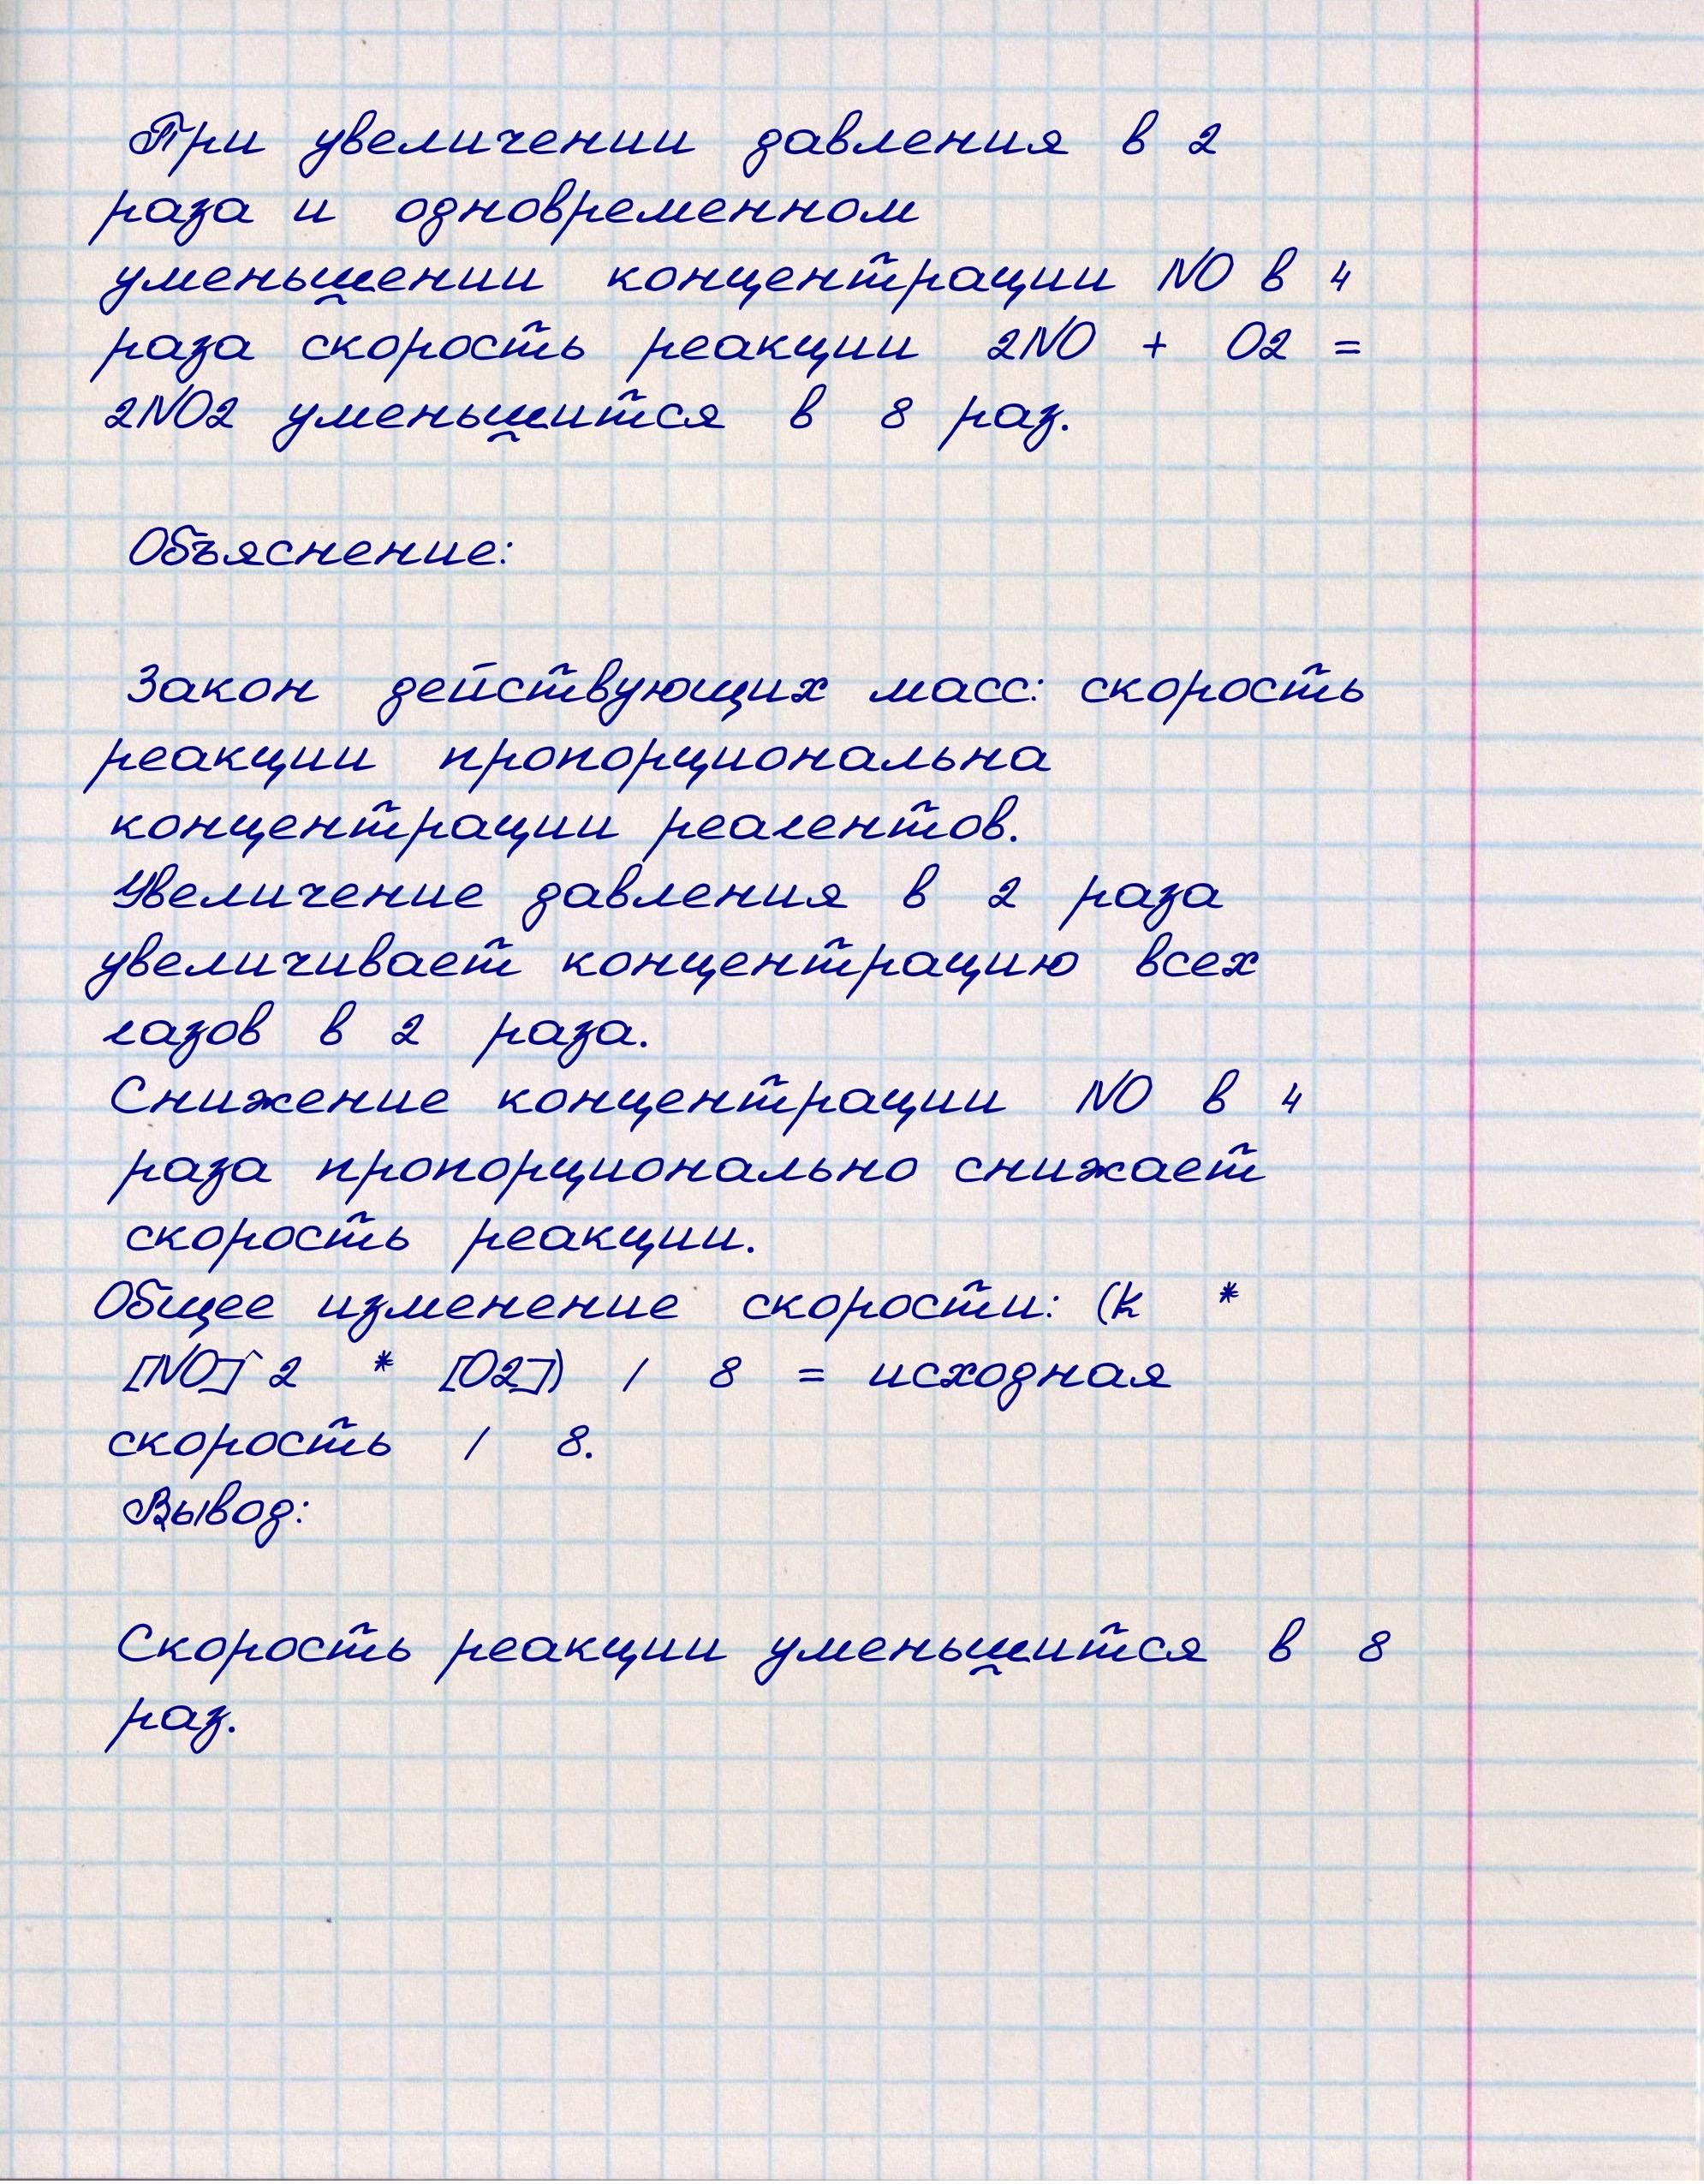 При увеличении давления в 2
раза и одновременном
уменьшении концентрации NO в 4
раза скорость реакции 2NO + O2 =
2NO2 уменьшится в 8 раз.
Объяснение:
Закон действующих масс: скорость
реакции пропорциональна
концентрации реагентов.
Увеличение давления в 2 раза
увеличивает концентрацию всех
газов в 2 раза.
Снижение концентрации NO в 4
раза пропорционально снижает
скорость реакции.
Общее изменение скорости: (k *
[NO]^2 * [O2]) / 8 = исходная
скорость / 8.
Вывод:
Скорость реакции уменьшится в 8
раз.